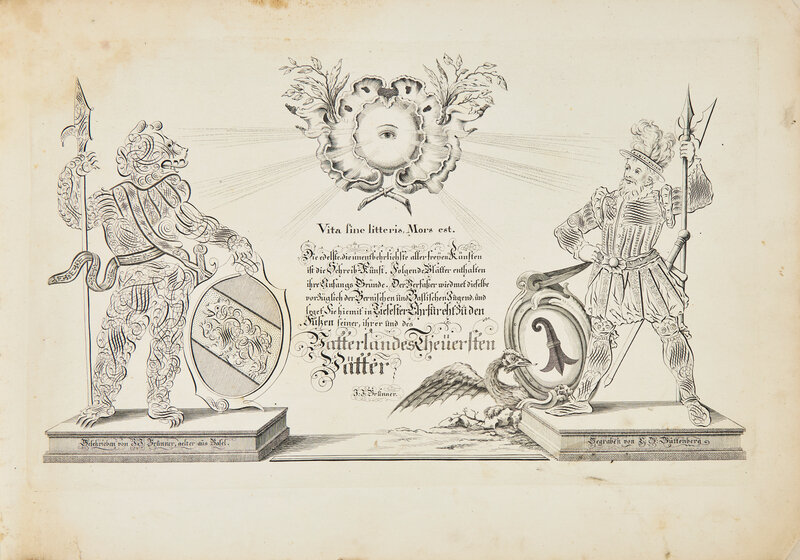 Vita sine litteris, Mors est.
Die edelste, die unentbehrlichste aller freyen Künsten
ist die Schreib-Kunst. Folgende Blätter enthalten
ihre Anfangs Gründe. Der Verfasser wiedmet dieselbe
vorzüglich der Bernischen und Baslischen Jugend, und
leget sie hiemit in Tiefester Ehrfurcht zu den
Füßen seiner, ihrer und des
Vatterlandes Theüersten
Vätter
J. J. Brunner.
Geschrieben von J. J. Brunner, aelter aus Basel.
Gegraben von